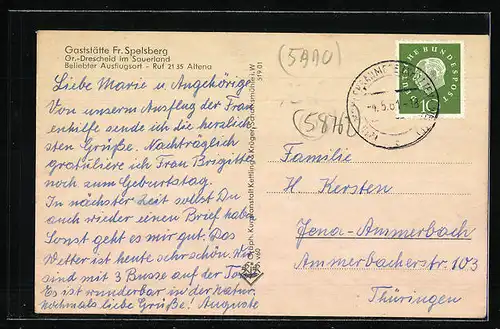 Gaststätte Fr. Spelsberg
Gr.-Drescheid im Sauerland
Beliebter Ausflugsort - Ruf 21 35 Altena
Liebe Marie u. Angehörige
Von unserm Ausflug der Frau
enhilfe sende ich die herzlich
sten Grüße. Nachträglich
gratuliere ich Frau Brigitte
noch zum Geburtstag.
In nächster Zeit sollst Du
auch wieder einen Brief habe
Sonst geht es mir gut. Das
Wetter ist heute sehr schön. Wir
sind mit 3 Busse auf der
Es ist wunderbar in der Natur.
Nochmals liebe Grüße! Auguste
Kunstanstalt Kettling & Krüger, Schalksmühle i.W
519 01
(5910)
(5876)
DEUTSCHE BUNDESPOST
10
Familie
H. Kersten
Jena-Ammerbach
Ammerbacherstr. 103
Thüringen